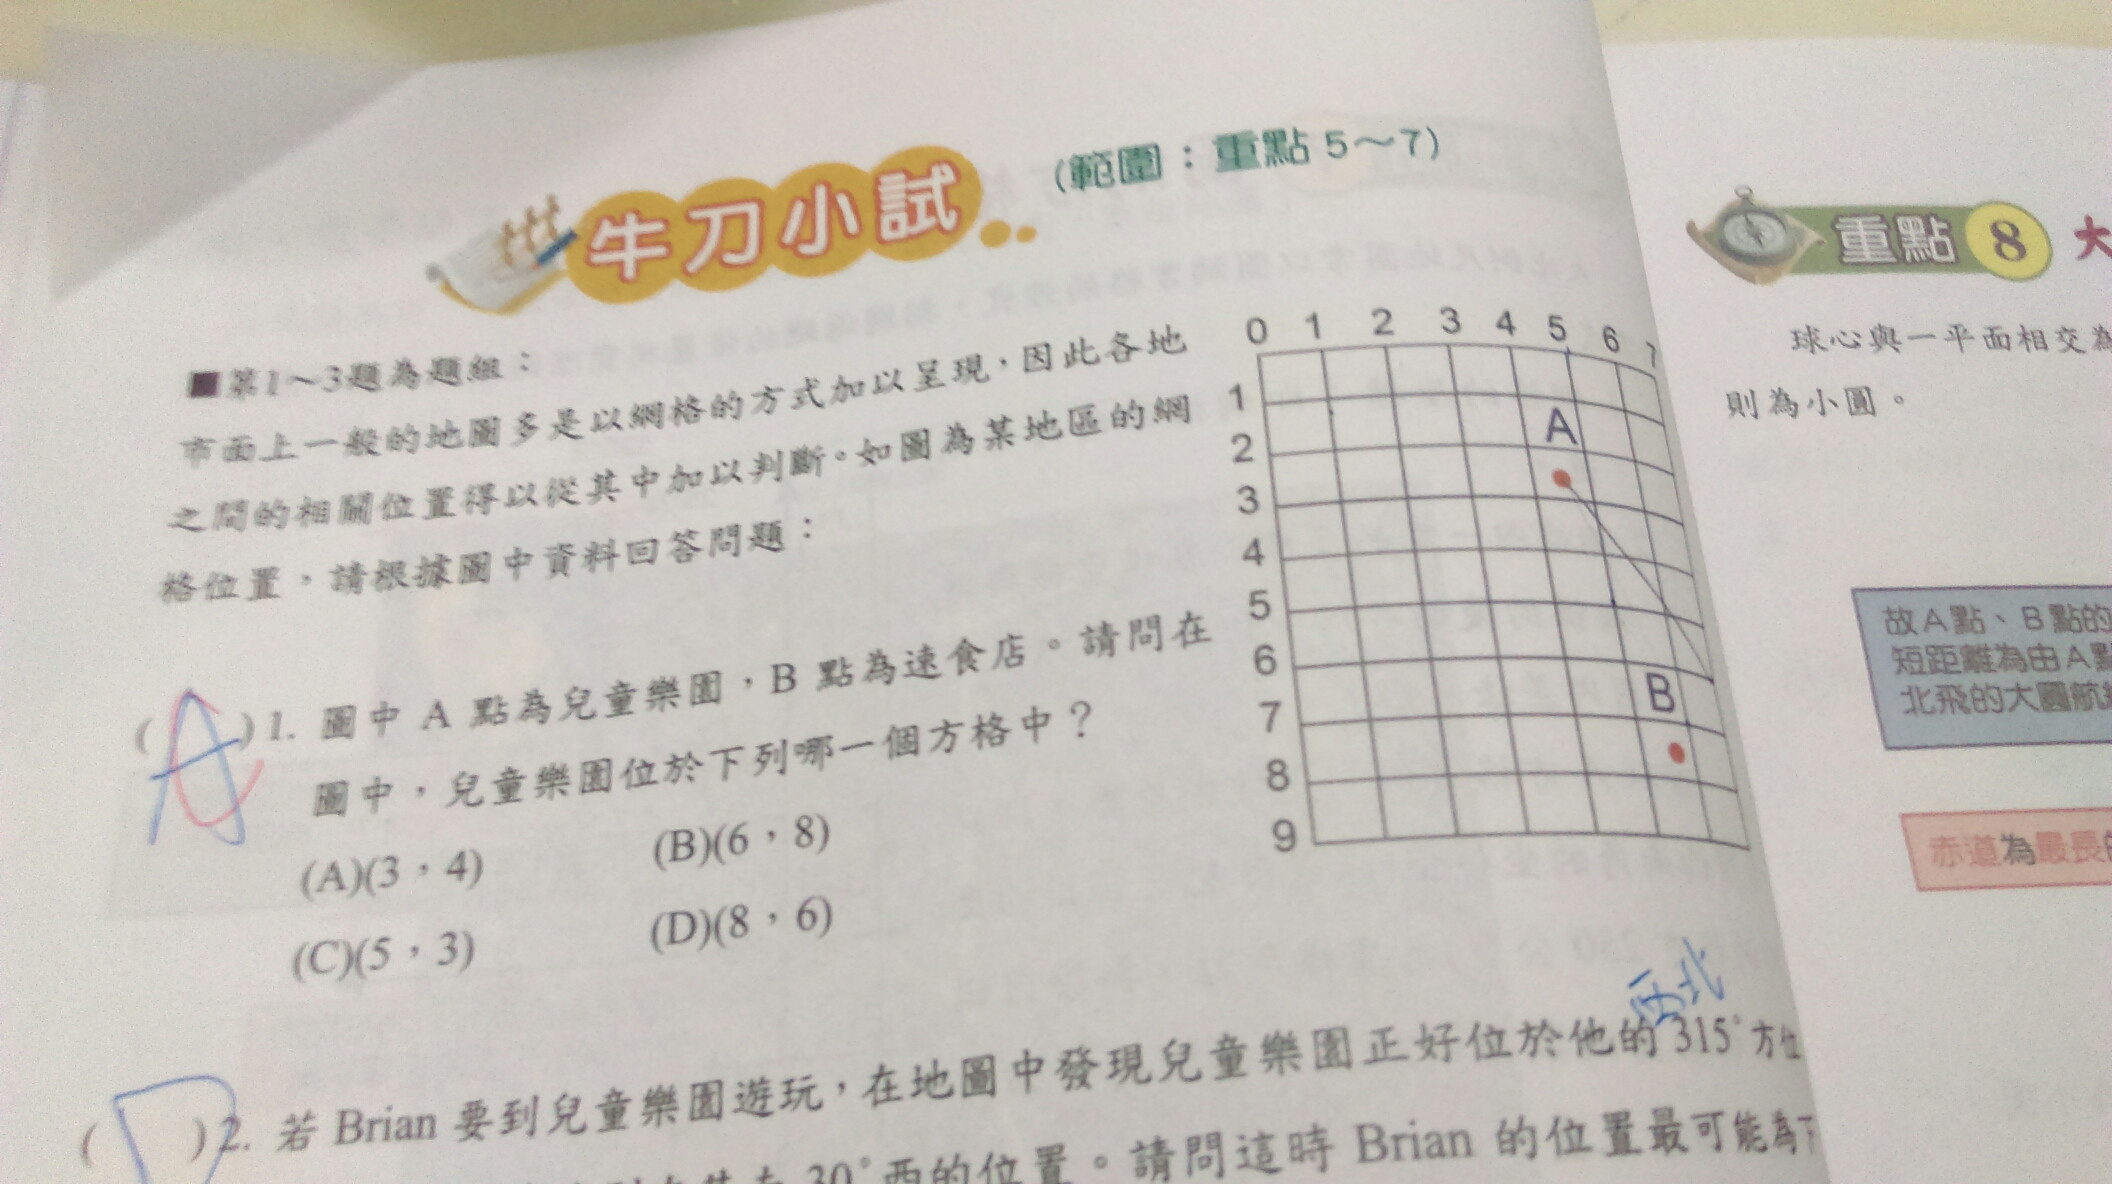 牛刀小試
(範圍：重點 5～7)
■第1～3題為題組：
市面上一般的地圖多是以網格的方式加以呈現，因此各地
之間的相關位置得以從其中加以判斷。如圖為某地區的網
格位置，請根據圖中資料回答問題：
0 1 2 3 4 5 6 7
1
2
3
4
5
6
7
8
9
A
B
( A ) 1. 圖中 A 點為兒童樂園，B 點為速食店。請問在
圖中，兒童樂園位於下列哪一個方格中？
(A)(3，4) (B)(6，8)
(C)(5，3) (D)(8，6)
西北
( D ) 2. 若 Brian 要到兒童樂園遊玩，在地圖中發現兒童樂園正好位於他的 315° 方位
30°西的位置。請問這時 Brian 的位置最可能為下
重點 8 大
球心與一平面相交為
則為小圓。
故A點、B點的
短距離為由A點
北飛的大圓航線
赤道為最長的